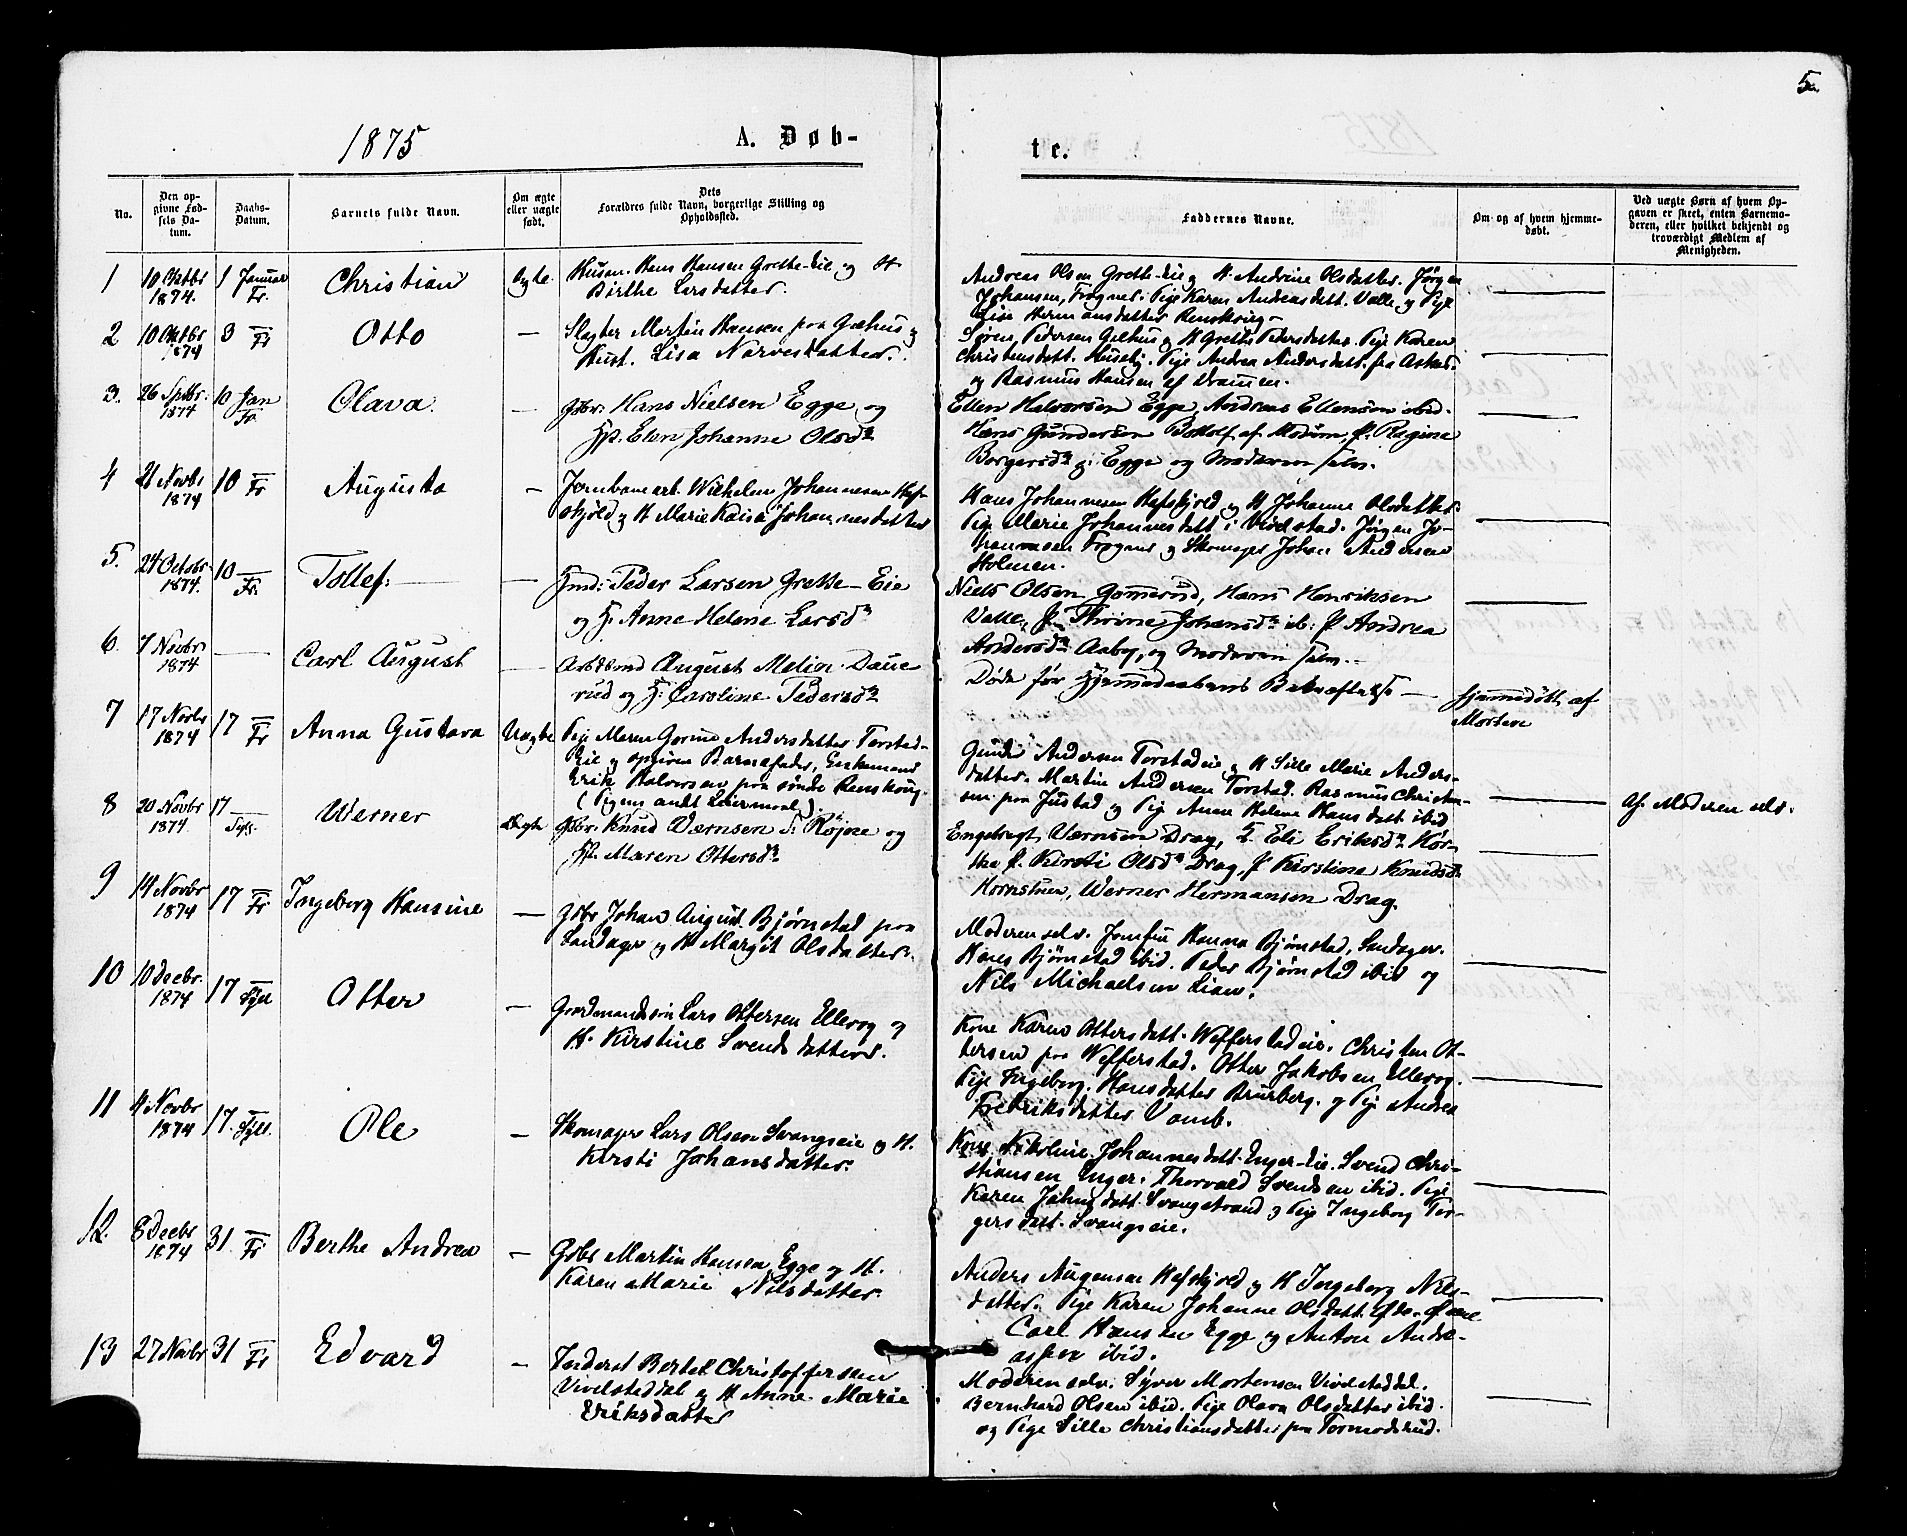 5
1875
A. Døb-
te.
No.
Den op-
givne Fød-
sels Da-
tum.
Daabs-
Datum.
Barnets fulde Navn.
Om ægte
eller uægte
født.
Dets
Forældres fulde Navn, borgerlige Stilling og
Opholdssted.
Faddernes Navne.
Om og af hvem hjemme-
døbt.
Ved uægte Børn af hvem Op-
gaven er skeet, enten Barnemo-
deren, eller hvilket bekjendt og
troværdigt Medlem af
Menigheden.
1
10 Oktbr
1874.
1 Januar
Fr.
Christian
Ægte
Husm. Hans Hansen Grette-Eie og H
Birthe Larsdatter.
Andreas Olsen Grette-Eie og H. Andrine Olsdatter. Jørgen
Johansen, Frogner. Pige Karen Andreasdatt. Valle og Pige
Lise Hermansdatter Renskoug
2
10 Oktbr
1874
3 — Fr
Otto
—
Slagter Martin Hansen paa Gjelhus og
Hust. Lisa Narvesdatter.
Søren Pedersen Gjelhus og H Grethe Pedersdatter. Pige Karen
Christensdatt. Huseby. Pige Andrea Andersdatt. fra Asker
og Rasmus Hansen af Drammen.
3.
26 Sptbr.
1874
10 Jan
Fr.
Olava.
—
Gbr. Hans Nielsen Egge og
Hp. Elen Johanne Olsdr
Ellen Halvorsen Egge, Andreas Ellensen ibid.
Hans Gundersen af Modum, P. Regine
Borgersdr Egge og Moderen selv.
4
21 Novbr
1874
10 — Fr
Augusta
—
Jernbanearb. Wilhelm Johannesen Hef-
skjold og H Marie Kaisa Johannesdatter
Hans Johannesen Hefskjold og H Johanne Olsdatter
Pige Marie Johannesdatt i Vivelstad. Jørgen Jo-
hannesen Frogner og Skomager Johan Andersen
Holmen.
5.
24 Octobr
1874.
10 — Fr.
Tollef.
—
Hmd: Peder Larsen Grette-Eie
og H. Anne Helene Larsdr
Niels Olsen Gommerud, Hans Henriksen
Valle, P. Thrine Johansdr ib: P Andrea
Andersdr Aaby, og Moderen selv.
6.
7 Novbr
1874
—
Carl August
—
Arbdsmd August Melin Daue-
rud og H: Caroline Pedersdr
Døde før Hjemmedaabens Bekræftelse —
Hjemmedøbt af
Morten
7
17 Novbr
1874
17 — Fr
Anna Gustava
Uægte
Pige Maren Gorine Andersdatter Torstad-
Eie og opgiven Barnefader, Enkemand
Erik Halvorsen paa søndre Renskoug.
(Pigens andet Leiermaal).
Gunder Andersen Torstadeie og H Sille Marie Anders-
datter. Martin Andersen Torstad. Rasmus Christen-
sen paa Justad og Pige Anne Helene Hansdatt ibid
Af Moderen selv.
8
20 Novbr
1874
17
— Sylt.
Werner
Ægte
Gbr. Knud Værnsen S: Røjse og
Hp. Maren Ottersdr
Engebregt Værnsen Drag, E. Eli Eriksdr Kør-
ka P. Kirsti Olsdr Drag, P Kirstine Knudsdr
Hornstuen, Werner Hermansen Drag.
9
14 Novbr
1874
17 — Fr
Ingeborg Hansine
—
Gbr Johan August Bjørnstad paa
Sandager og H Margit Olsdatter.
Moderen selv. Jomfru Hanna Bjørnstad, Sandager.
Hans Bjørnstad ibid. Peder Bjørnstad ibid og
Nils Michaelsen Lian.
10
10 Decbr.
1874
17 — Sylt
Otter
—
Gaardmandssøn Lars Ottersen Ellerog og
H. Kirstine Svendsdatter.
Kone Karen Ottersdatt. Weffersladeie. Christen Ot-
tersen paa Wefferstad. Otter Jakobsen Ellerog.
Pige Ingeborg Hansdatter Bruberg. og Pige Andrea
Fredriksdatter Vamb.
11
4 Novbr
1874
17. — Sylt.
Ole
—
Skomager Lars Olsen Svangseie og H.
Kirsti Johansdatter.
Kone Nikoline Johannesdatt. Enger-Eie. Svend Chri-
stiansen Enger. Thorvald Svendsen ibid. Pige
Karen Johnsdatt. Svangstrand og Pige Ingeborg Tor-
gersdatt. Svangseie.
12.
8 Decbr
1874
31 — Fr
Berthe Andrea
—
Gbr Martin Hansen Egge og H.
Karen Marie Nilsdatter.
Anders Augensen Hefskjold og H Ingeborg Nils-
datter. Pige Karen Johanne Olsdatt.
Carl Hansen Egge og Anton Andre-
assen ibid.
13
27 Novbr
31 — Fr
Edvard
—
Inderst Bertel Christoffersen
Vivelstaddal og H Anne Marie
Eriksdatter
Moderen selv. Syver Mortensen Vivelstaddal.
Bernhard Olsen ibid. Pige Olava Olsdatter ibid.
og Pige Sille Christiansdatter paa Tormodsrud.